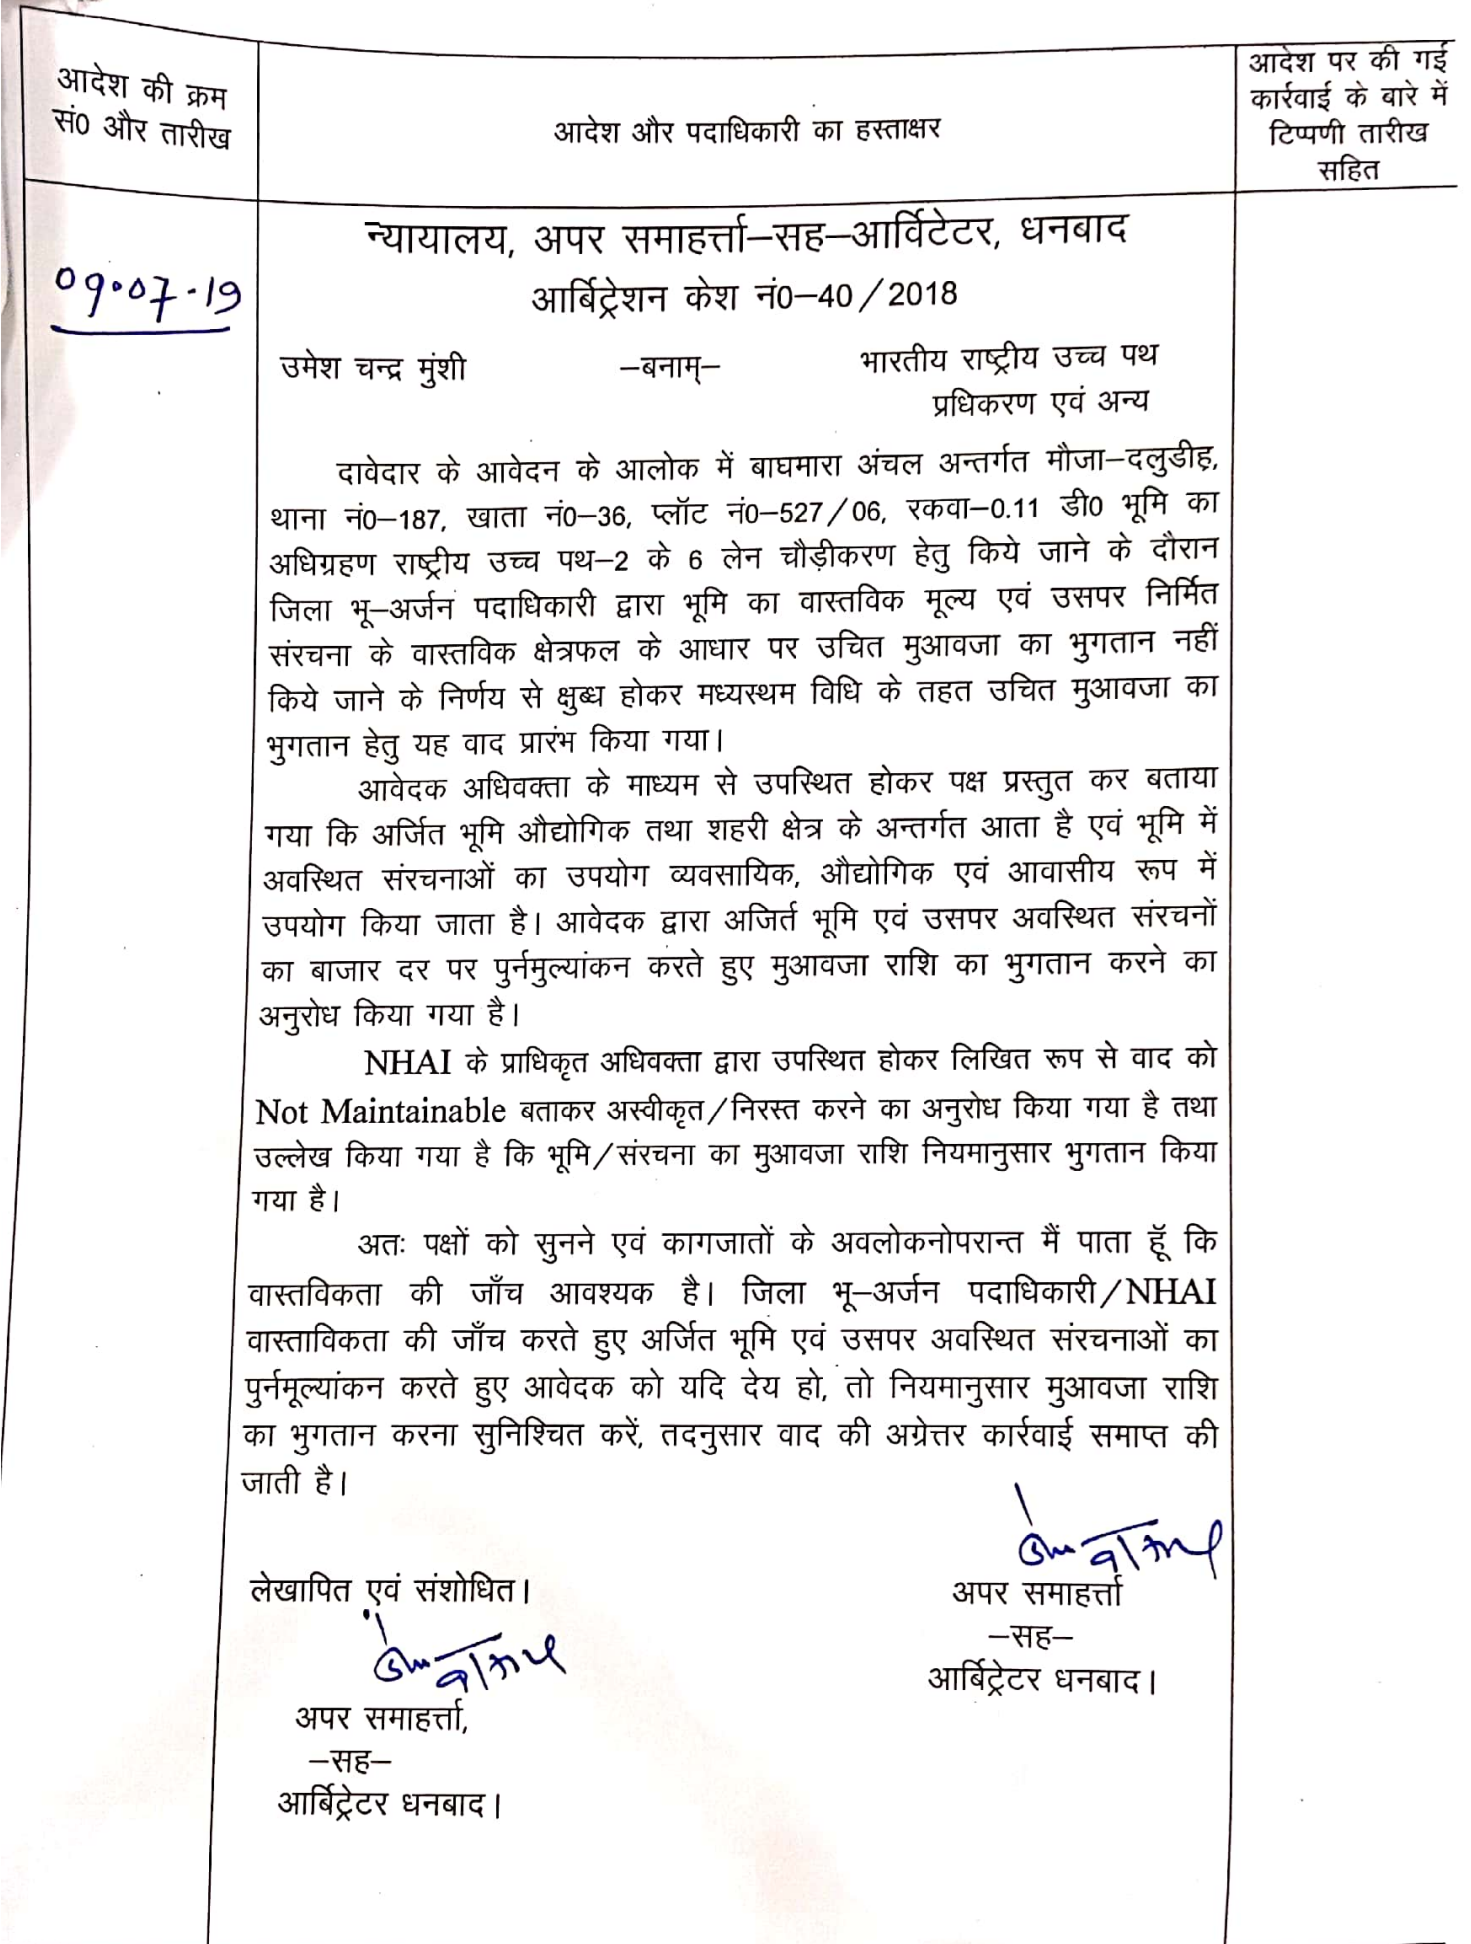 आदेश की क्रम
सं0 और तारीख
आदेश और पदाधिकारी का हस्ताक्षर
आदेश पर की गई
कार्रवाई के बारे में
टिप्पणी तारीख
सहित
09.07.19
न्यायालय, अपर समाहर्त्ता–सह–आर्विटेटर, धनबाद
आर्बिट्रेशन केश नं0–40/2018
उमेश चन्द्र मुंशी –बनाम्– भारतीय राष्ट्रीय उच्च पथ
प्रधिकरण एवं अन्य
दावेदार के आवेदन के आलोक में बाघमारा अंचल अन्तर्गत मौजा–दलुडीह,
थाना नं0–187, खाता नं0–36, प्लॉट नं0–527/06, रकवा–0.11 डी0 भूमि का
अधिग्रहण राष्ट्रीय उच्च पथ–2 के 6 लेन चौड़ीकरण हेतु किये जाने के दौरान
जिला भू–अर्जन पदाधिकारी द्वारा भूमि का वास्तविक मूल्य एवं उसपर निर्मित
संरचना के वास्तविक क्षेत्रफल के आधार पर उचित मुआवजा का भुगतान नहीं
किये जाने के निर्णय से क्षुब्ध होकर मध्यस्थम विधि के तहत उचित मुआवजा का
भुगतान हेतु यह वाद प्रारंभ किया गया।
आवेदक अधिवक्ता के माध्यम से उपस्थित होकर पक्ष प्रस्तुत कर बताया
गया कि अर्जित भूमि औद्योगिक तथा शहरी क्षेत्र के अन्तर्गत आता है एवं भूमि में
अवस्थित संरचनाओं का उपयोग व्यवसायिक, औद्योगिक एवं आवासीय रूप में
उपयोग किया जाता है। आवेदक द्वारा अजिर्त भूमि एवं उसपर अवस्थित संरचनों
का बाजार दर पर पुर्नमुल्यांकन करते हुए मुआवजा राशि का भुगतान करने का
अनुरोध किया गया है।
NHAI के प्राधिकृत अधिवक्ता द्वारा उपस्थित होकर लिखित रूप से वाद को
Not Maintainable बताकर अस्वीकृत/निरस्त करने का अनुरोध किया गया है तथा
उल्लेख किया गया है कि भूमि/संरचना का मुआवजा राशि नियमानुसार भुगतान किया
गया है।
अतः पक्षों को सुनने एवं कागजातों के अवलोकनोपरान्त मैं पाता हूॅ कि
वास्तविकता की जाँच आवश्यक है। जिला भू–अर्जन पदाधिकारी/NHAI
वास्ताविकता की जाँच करते हुए अर्जित भूमि एवं उसपर अवस्थित संरचनाओं का
पुर्नमूल्यांकन करते हुए आवेदक को यदि देय हो, तो नियमानुसार मुआवजा राशि
का भुगतान करना सुनिश्चित करें, तदनुसार वाद की अग्रेत्तर कार्रवाई समाप्त की
जाती है।
लेखापित एवं संशोधित।
अपर समाहर्त्ता
–सह–
आर्बिट्रेटर धनबाद।
अपर समाहर्त्ता,
–सह–
आर्बिट्रेटर धनबाद।